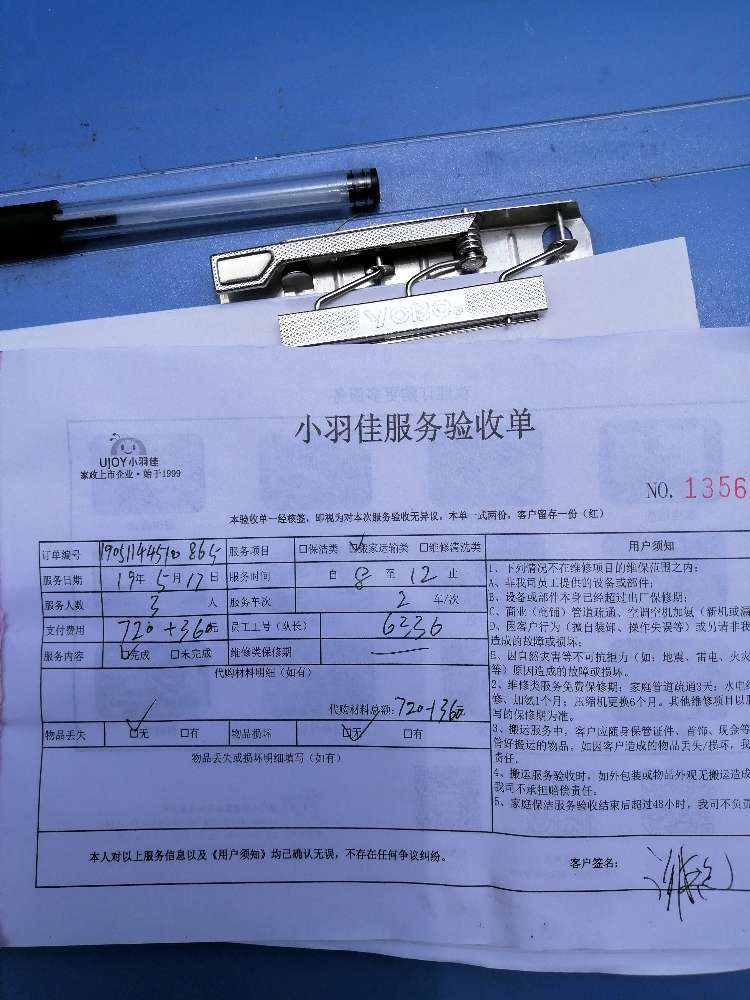 YOBO
小羽佳服务验收单
UJOY小羽佳
家政上市企业·始于1999
NO. 1356
本验收单一经核签，即视为对本次服务验收无异议，本单一式两份，客户留存一份（红）
订单编号 190511445100865 服务项目 □保洁类 □搬家运输类 □维修清洗类 用户须知
服务日期 19年5月17日 服务时间 自 8 至 12 止
服务人数 3 人 服务车次 2 车/次
支付费用 720+360元 员工工号（队长） 6336
服务内容 □完成 □未完成 维修类保修期
代购材料明细（如有）
代购材料总额：720+360
物品丢失 □无 □有 物品损坏 □无 □有
物品丢失或损坏明细填写（如有）
1、下列情况不在维修项目的维保范围之内：
A、非我司员工提供的设备或部件；
B、设备或部件本身已经超过出厂保修期；
C、商业（商铺）管道疏通、空调空机加氨（新机或漏
D、因客户行为（擅自装卸、操作失误等）或另请非我
造成的故障或损坏；
E、因自然灾害等不可抗拒力（如：地震、雷电、火灾
等）原因造成的故障或损坏。
2、维修类服务免费保修期：家庭管道疏通3天；水电维
修、加氨1个月；压缩机更换6个月。其他维修项目以服
写的保修期为准。
3、搬运服务中，客户应随身保管证件、首饰、现金等
管好搬运的物品，如因客户造成的物品丢失/损坏，我
责任。
4、搬运服务验收时，如外包装或物品外观无搬运造成
我司不承担赔偿责任。
5、家庭保洁服务验收结束后超过48小时，我司不负责
本人对以上服务信息以及《用户须知》均已确认无误，不存在任何争议纠纷。
客户签名：